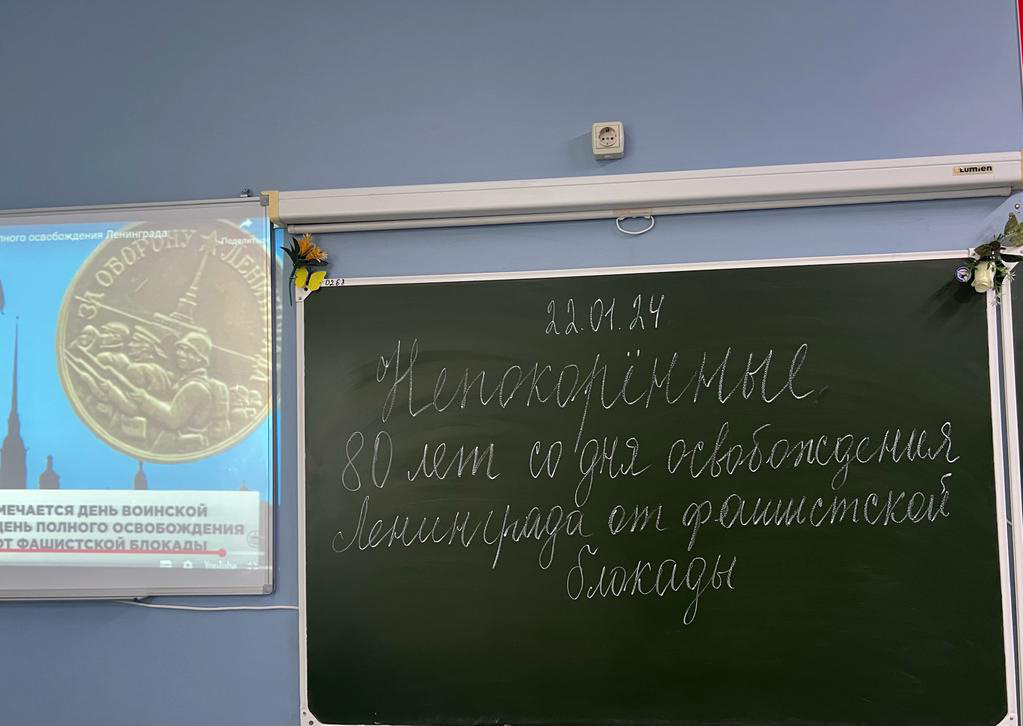 Lumien
лного освобождения Ленинграда
Поделиться
ЗА ОБОРОНУ ЛЕНИН
МЕЧАЕТСЯ ДЕНЬ ВОИНСКОЙ
ДЕНЬ ПОЛНОГО ОСВОБОЖДЕНИЯ
ОТ ФАШИСТСКОЙ БЛОКАДЫ
YouTube
22.01.24
Непокорённые
80 лет со дня освобождения
Ленинграда от фашистской
блокады